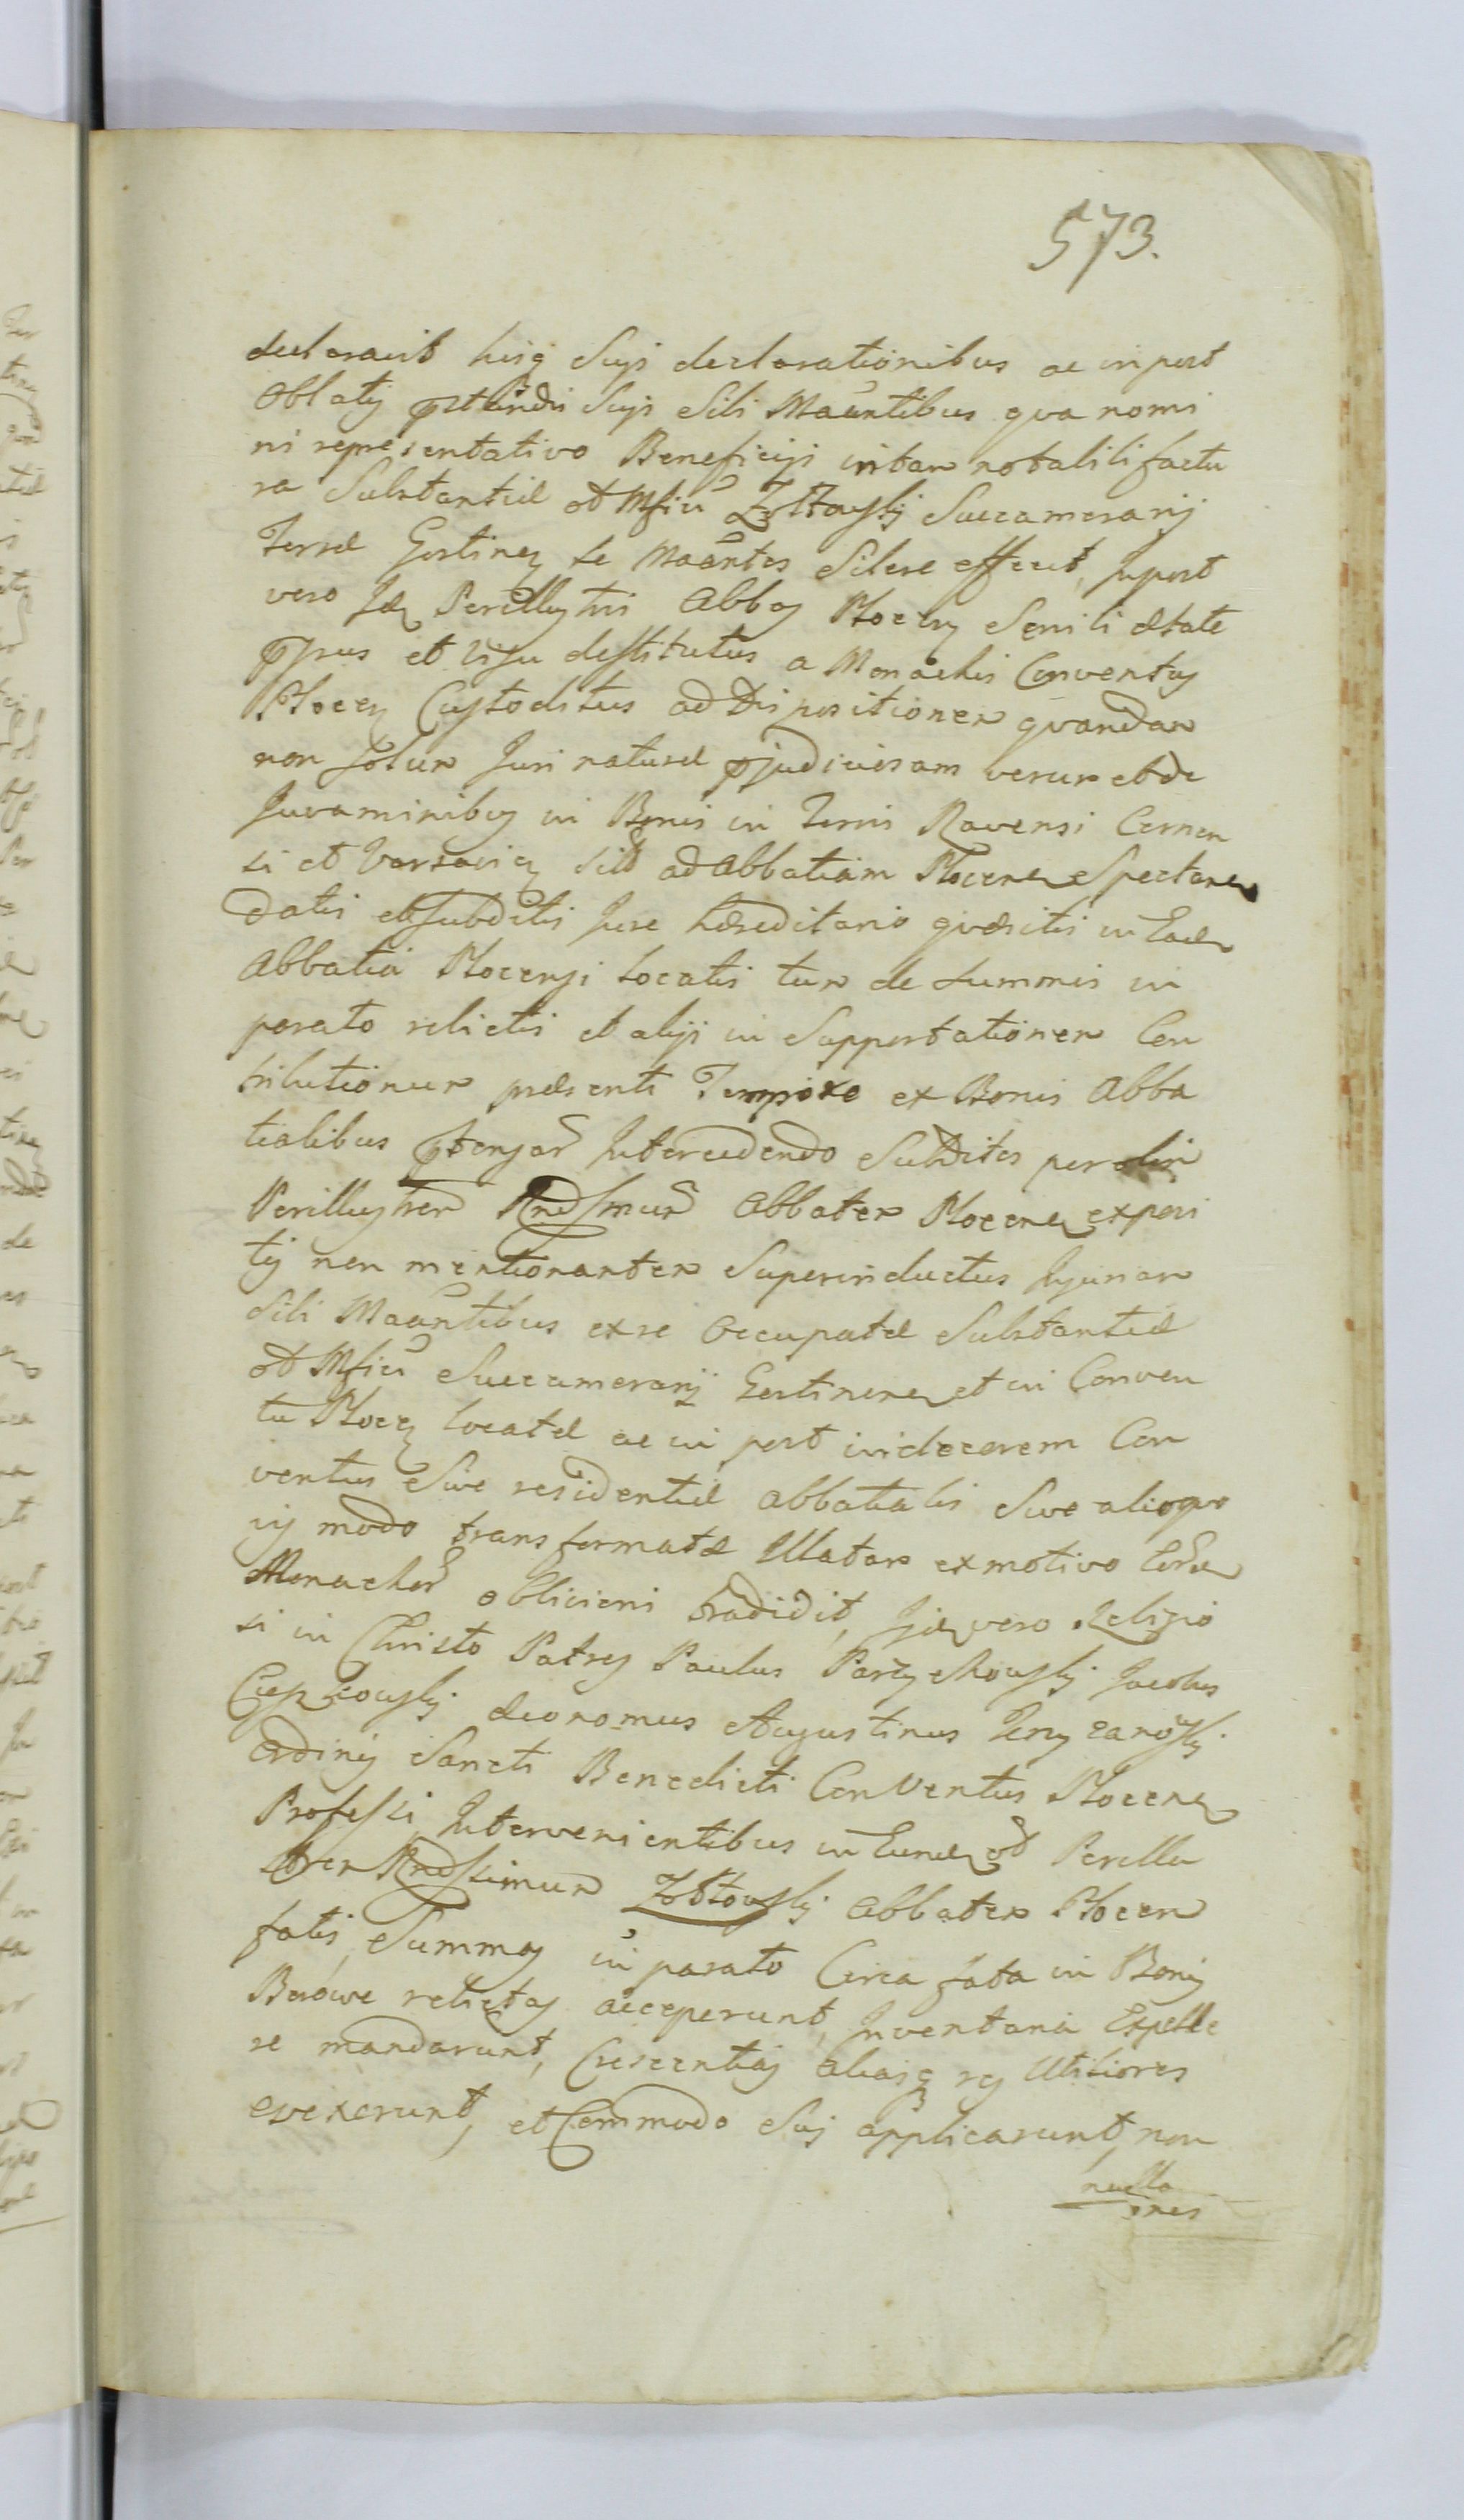 573.
declaravit hisq suis declarationibus ac inpost
Oblatis sibi Maantibus qua nomi
ni repræsentativo Beneficiis notabili factu
ra Substantiæ ol Mfici Zołtowskij Succamerarij
Terræ Gostinen se Maantes silere effecit, Inpost
vero Idem Perillustris Abbas Plocen Senili ætate
et visu destitutus a Monachis Conventus
Plocen Custoditus ad Dispositionem quandam
non solum Juri naturæ pjudiciosam verum et de
Juvaminibus in Bonis in Terris Ravensi Cernen
si et Varsavien sitis ad Abbatiam Plocen Spectanes
datis et subditis Jure hæreditario quæsitis in Eade
Abbatia Plocensi locatis tum de Summis in
parato relictis et aliis in Supportationem Con
tributionum præsenti Tempore ex Bonis Abba
tialibus Intercedendo Subditos per olim
Perillustrem Rndssmum Abbatem Plocene exposi
tis non mentionantem Superinductus Injuriam
Sibi Maantibus ex re Occupatæ Substantiæ
ol Mfici Succamerarij Gostinene et in Conven
tu Plocen locatæ ac in post in decorem Con
ventus Sive residentiæ Abbatialis Sive alioqvo
vis modo transformatæ Illatam ex motivo
Monachor oblivioni tradidit, Iidem vero Religio
si in Christo Patres Paulus Jacobus
æconomus Augustinus
Ordinis Sancti Benedicti Conventus Plocene
Professi, Intervenientibus in Eunde ol Perillu
strem Rndssimum Zołtowskij Abbatem Plocen
fatis, Summas in parato Circa fata in Bonis
relictas acceperunt, Inventaria Expelle
re mandarunt, Crescentias aliasq res Utiliores
evexerunt, et Commodo Suo applicarunt, non
nulla